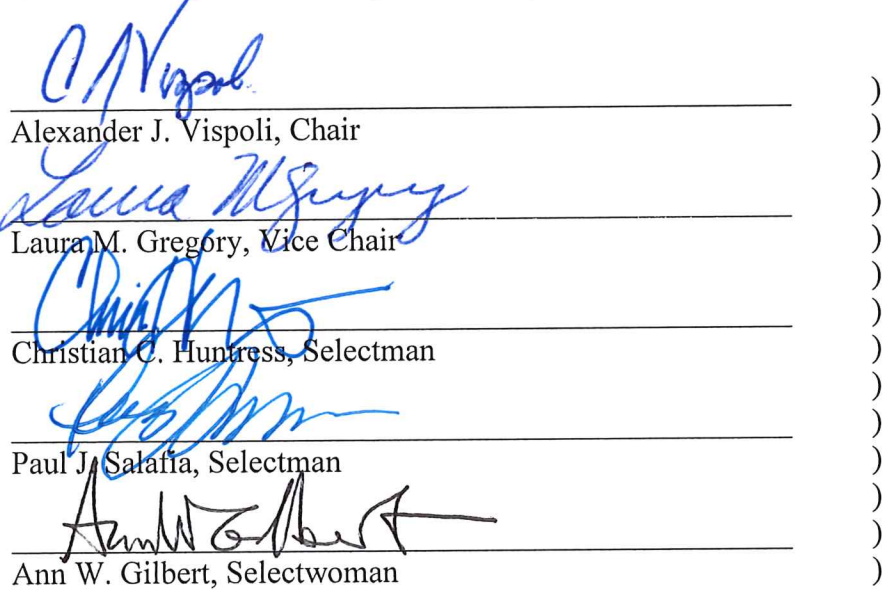 )
Alexander J. Vispoli, Chair )
)
Laura M Gregory )
Laura M. Gregory, Vice Chair )
)
)
Christian C. Huntress, Selectman )
)
)
Paul J. Salafia, Selectman )
)
Ann W Gilbert )
Ann W. Gilbert, Selectwoman )